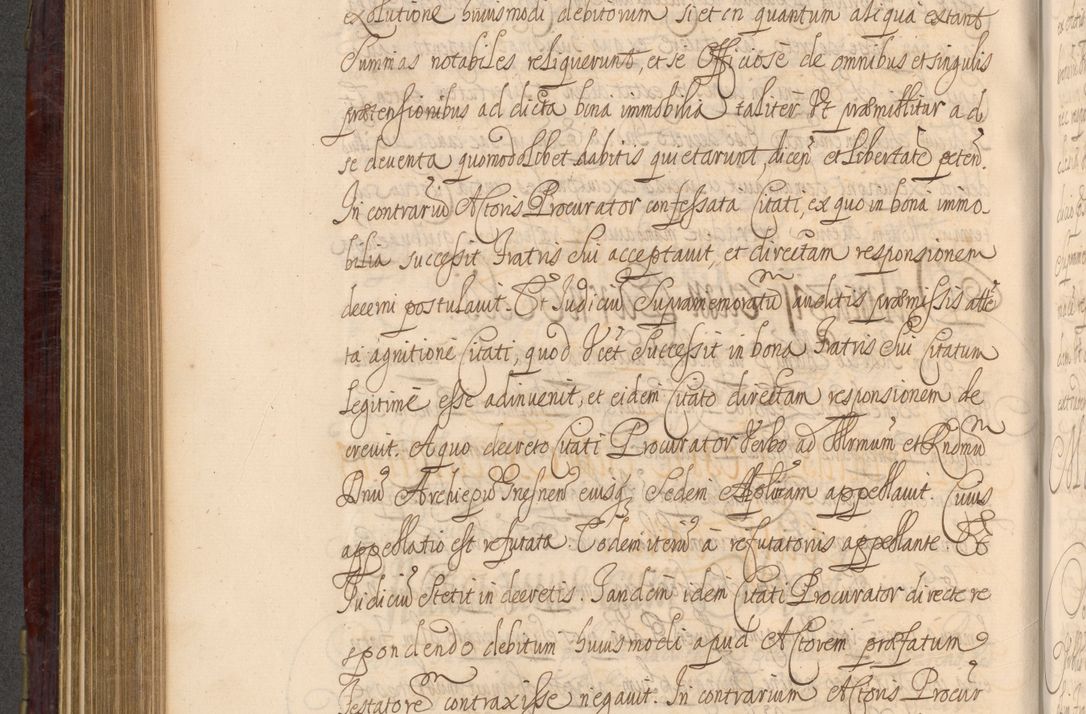 exolutione huiusmodi debitorum si et in quantum aliqua extant
Summas notabiles reliquerunt, et se Officiose de omnibus et singulis
prætensionibus ad dicta bona immobilia taliter Vt præmittitur ad
se deventa quomodolibet habitis quietarunt, dicen et libertate peten.
In contrariũ Actoris Procurator confessata Citati, ex quo in bona immo-
bilia successit Fratris sui acceptavit, et directam responsionem
decerni postulavit. Et Judiciũ Supramemoratũ ansutis præmissis atte
ta agnitione Citati, quod Vcet Successit in bona Fratris Sui Citatum
Legitime esse adinvenit, et eidem Citato directam responsionem de
crevit. A quo decreto Citati Procurator Verbo ad Illrmum et Rndmũ
Dnũ Archiepũ Gnesnen eiusq Sedem Aplicam appellavit. Cuius
appellatio est refutata. Eodem iterũ a refutatoriis appellante Et
Judiciũ Stetit in decretis. Tandem idem Citati Procurator directe re
spondendo debitum huiusmodi apud Actorem præfatum
Testatore contraxisse negavit. In contrarium Actoris Procur